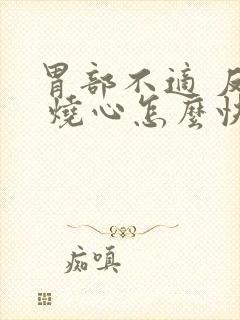 胃部不適
燒心怎麼快
痴嗔